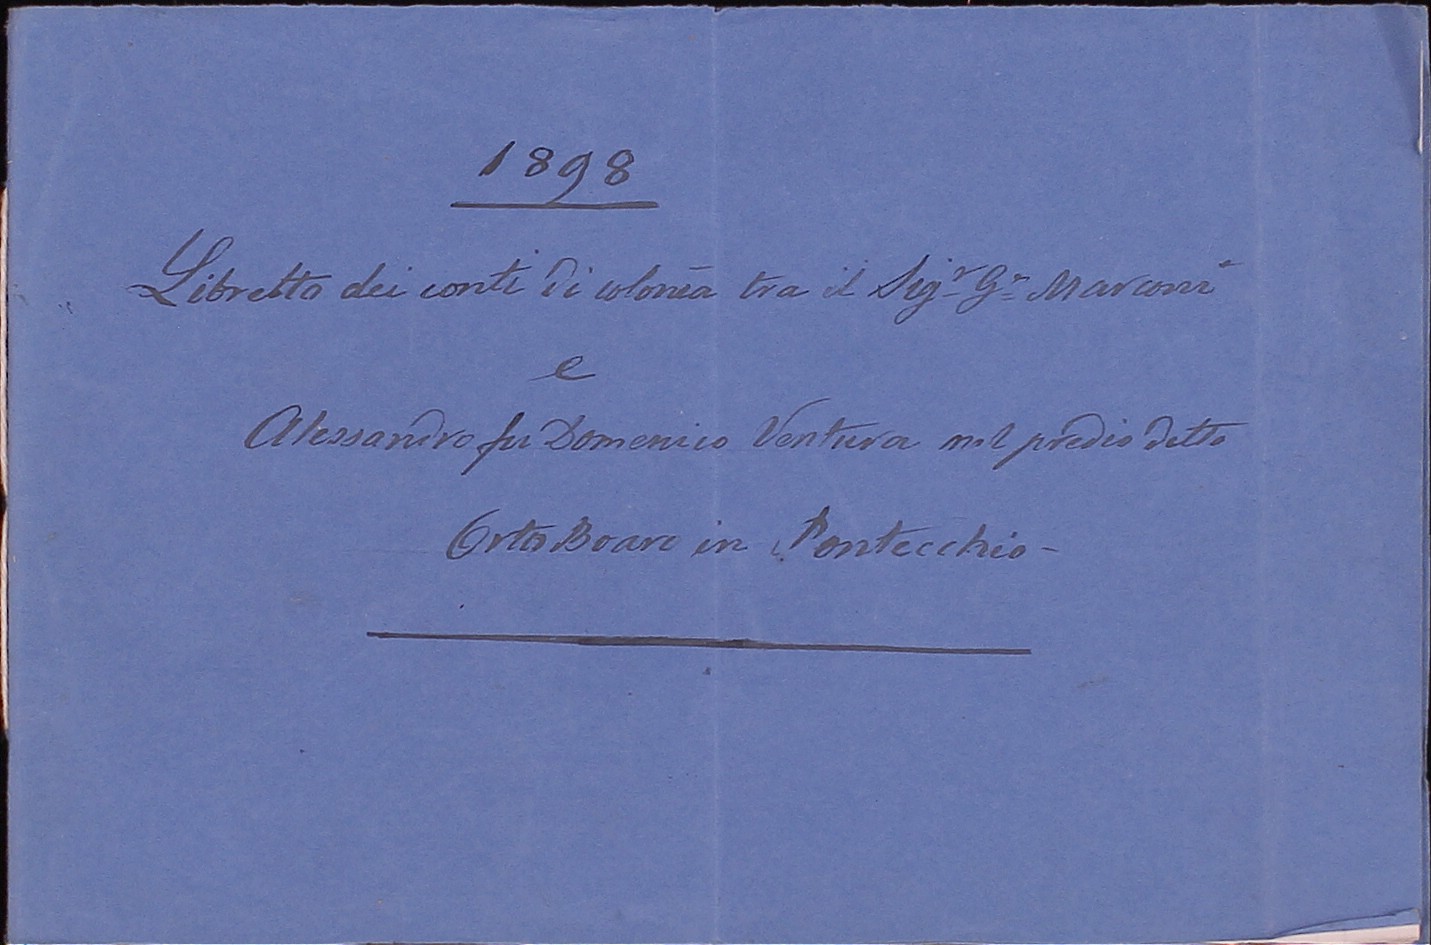 1898
Libretto dei conti di colonia tra il Sigr Gn Marconi
e
Alessandro fu Domenico Ventura nel predio detto
Orto Boaro in Pontecchio -